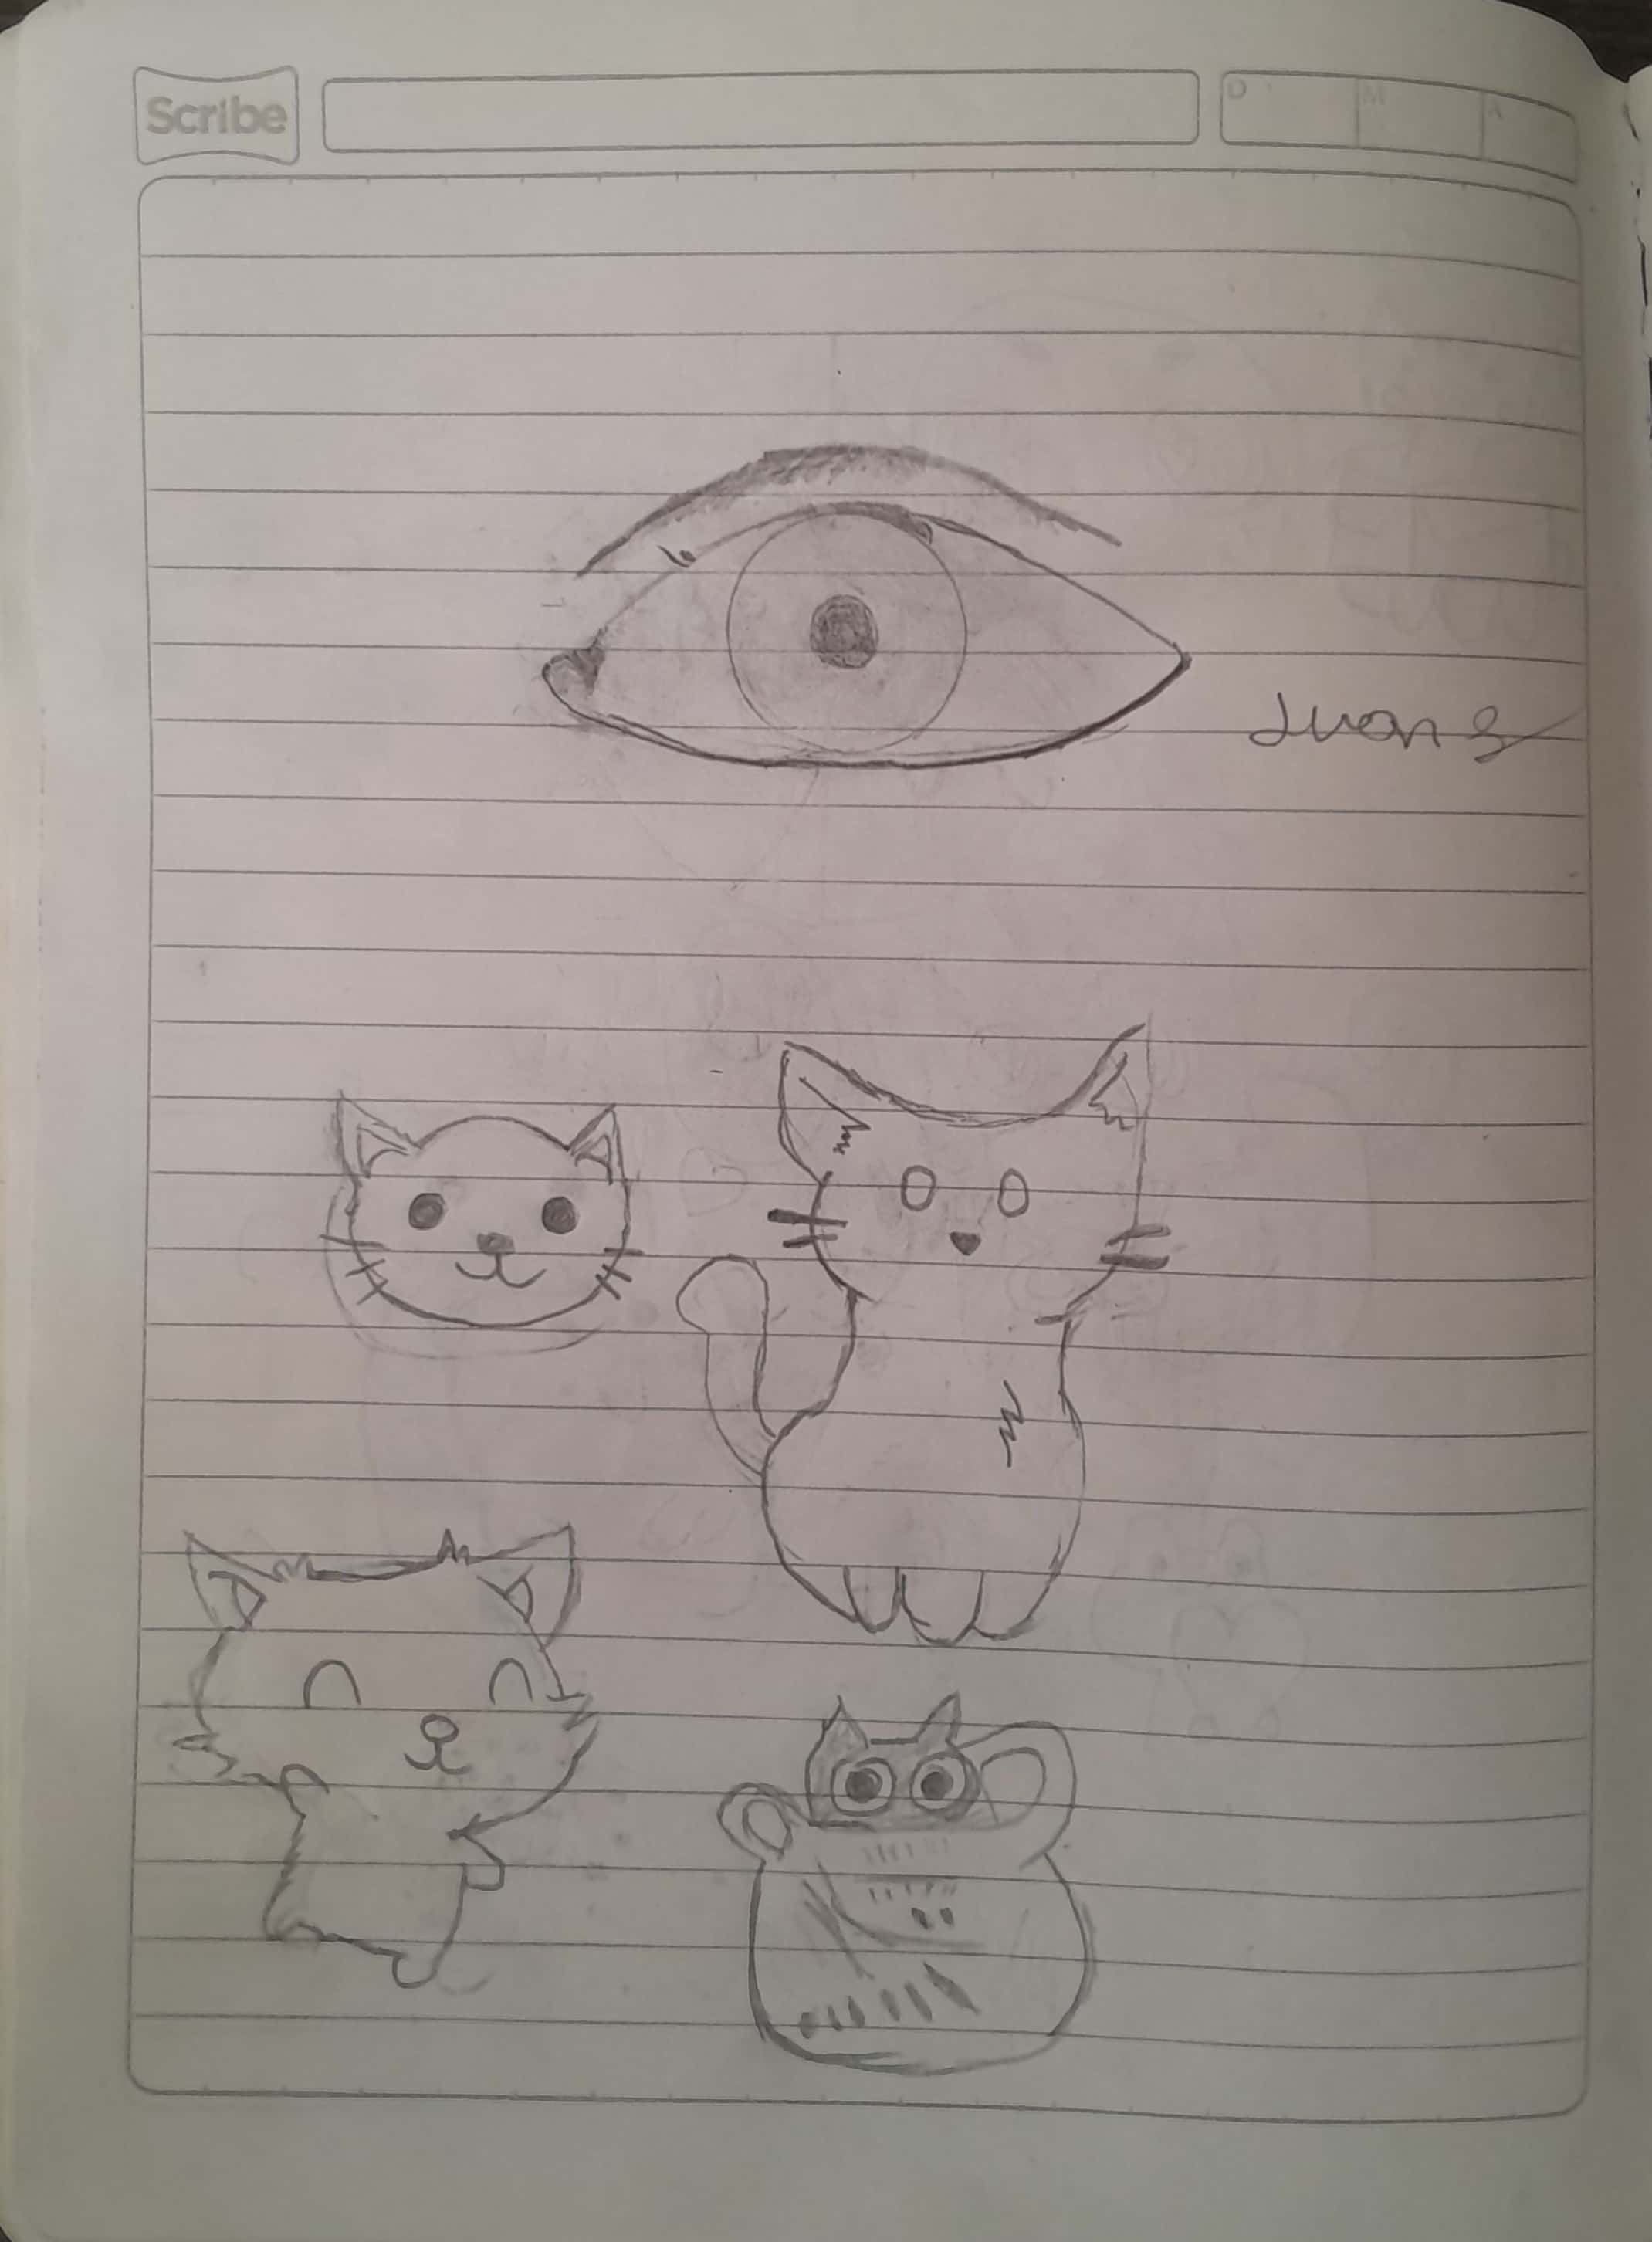 Scribe
D M A
Juan S